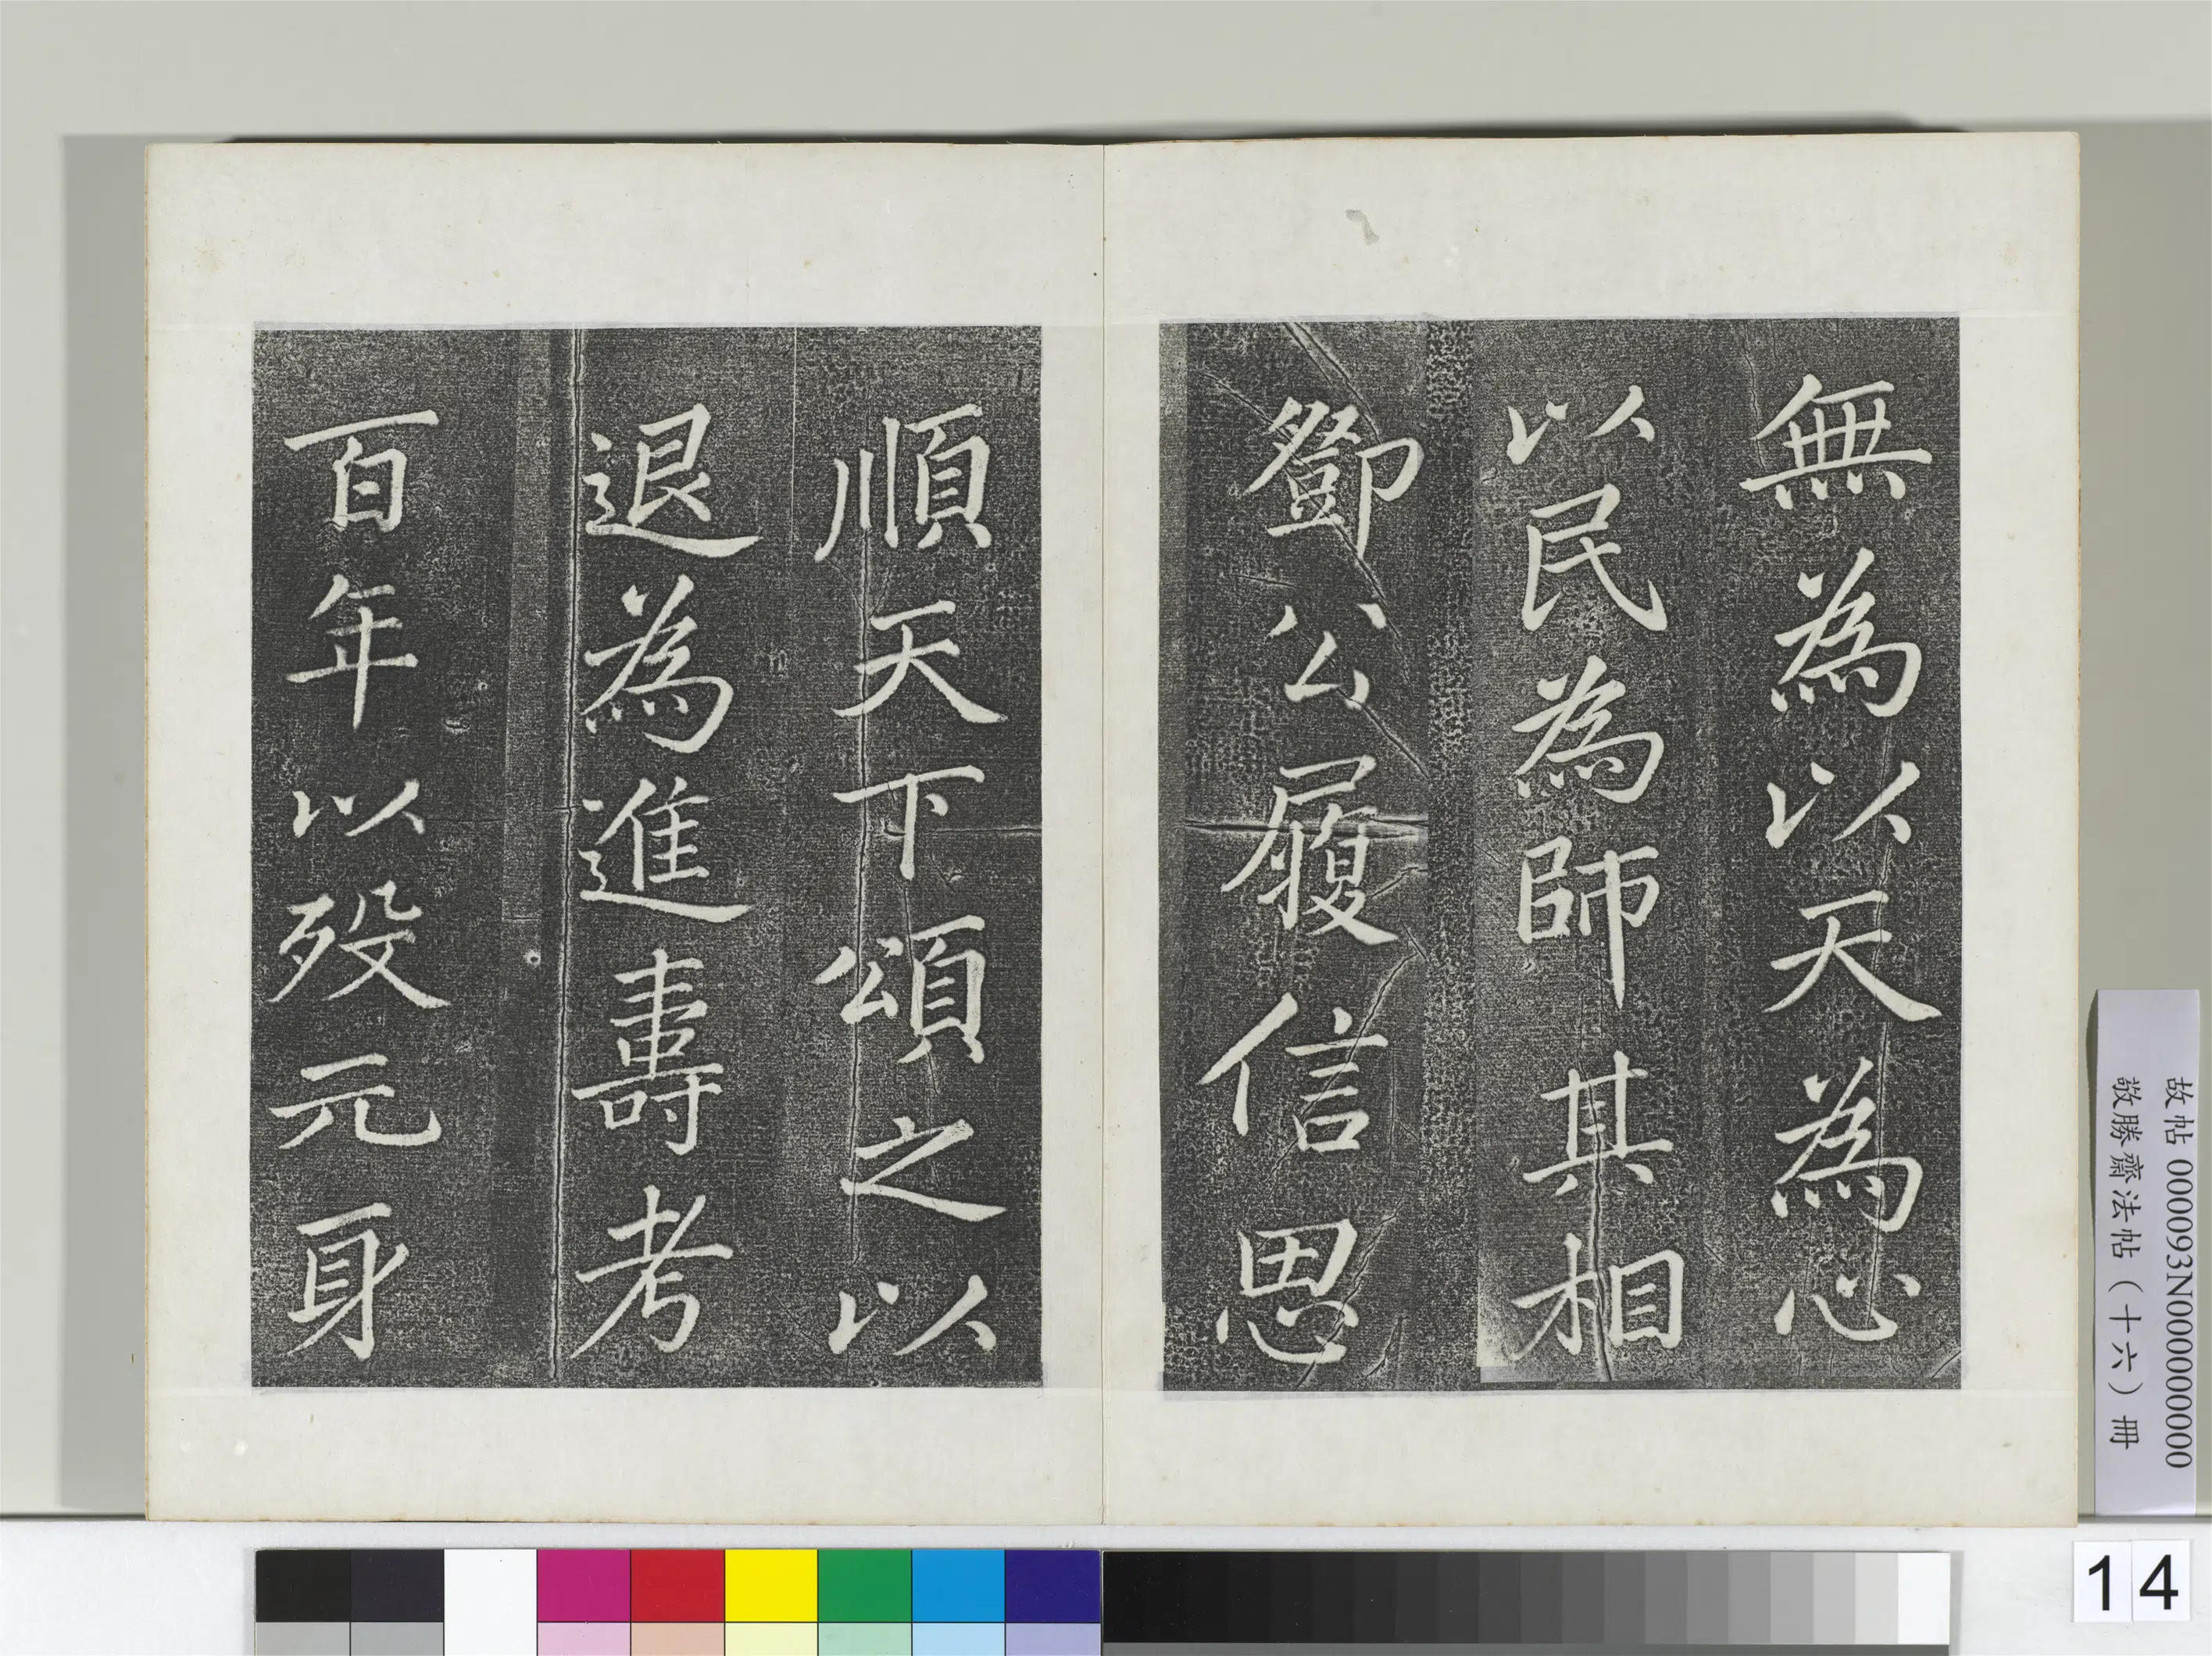 無為以天為心
以民為師其相
鄧公履信思
順天下頌之以
退為進壽考
百年以歿元身
故帖 000093N000000000
敬勝齋法帖（十六）冊
14